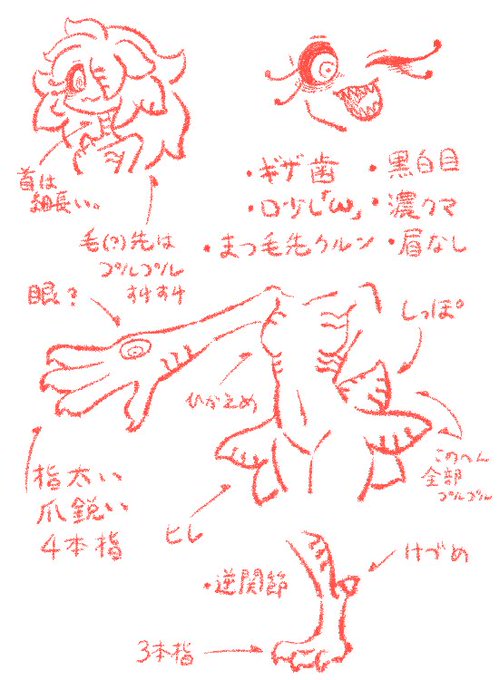 首は
細長い。
毛(?)先は
プルプル
すけすけ
・ギザ歯
・黒白目
・口少し「ω」
・濃クマ
・まつ毛先クルン
・眉なし
眼?
ひかえめ
しっぽ
このへん
全部
プルプル
指太い
爪鋭い
4本指
ヒレ
・逆関節
けづめ
3本指